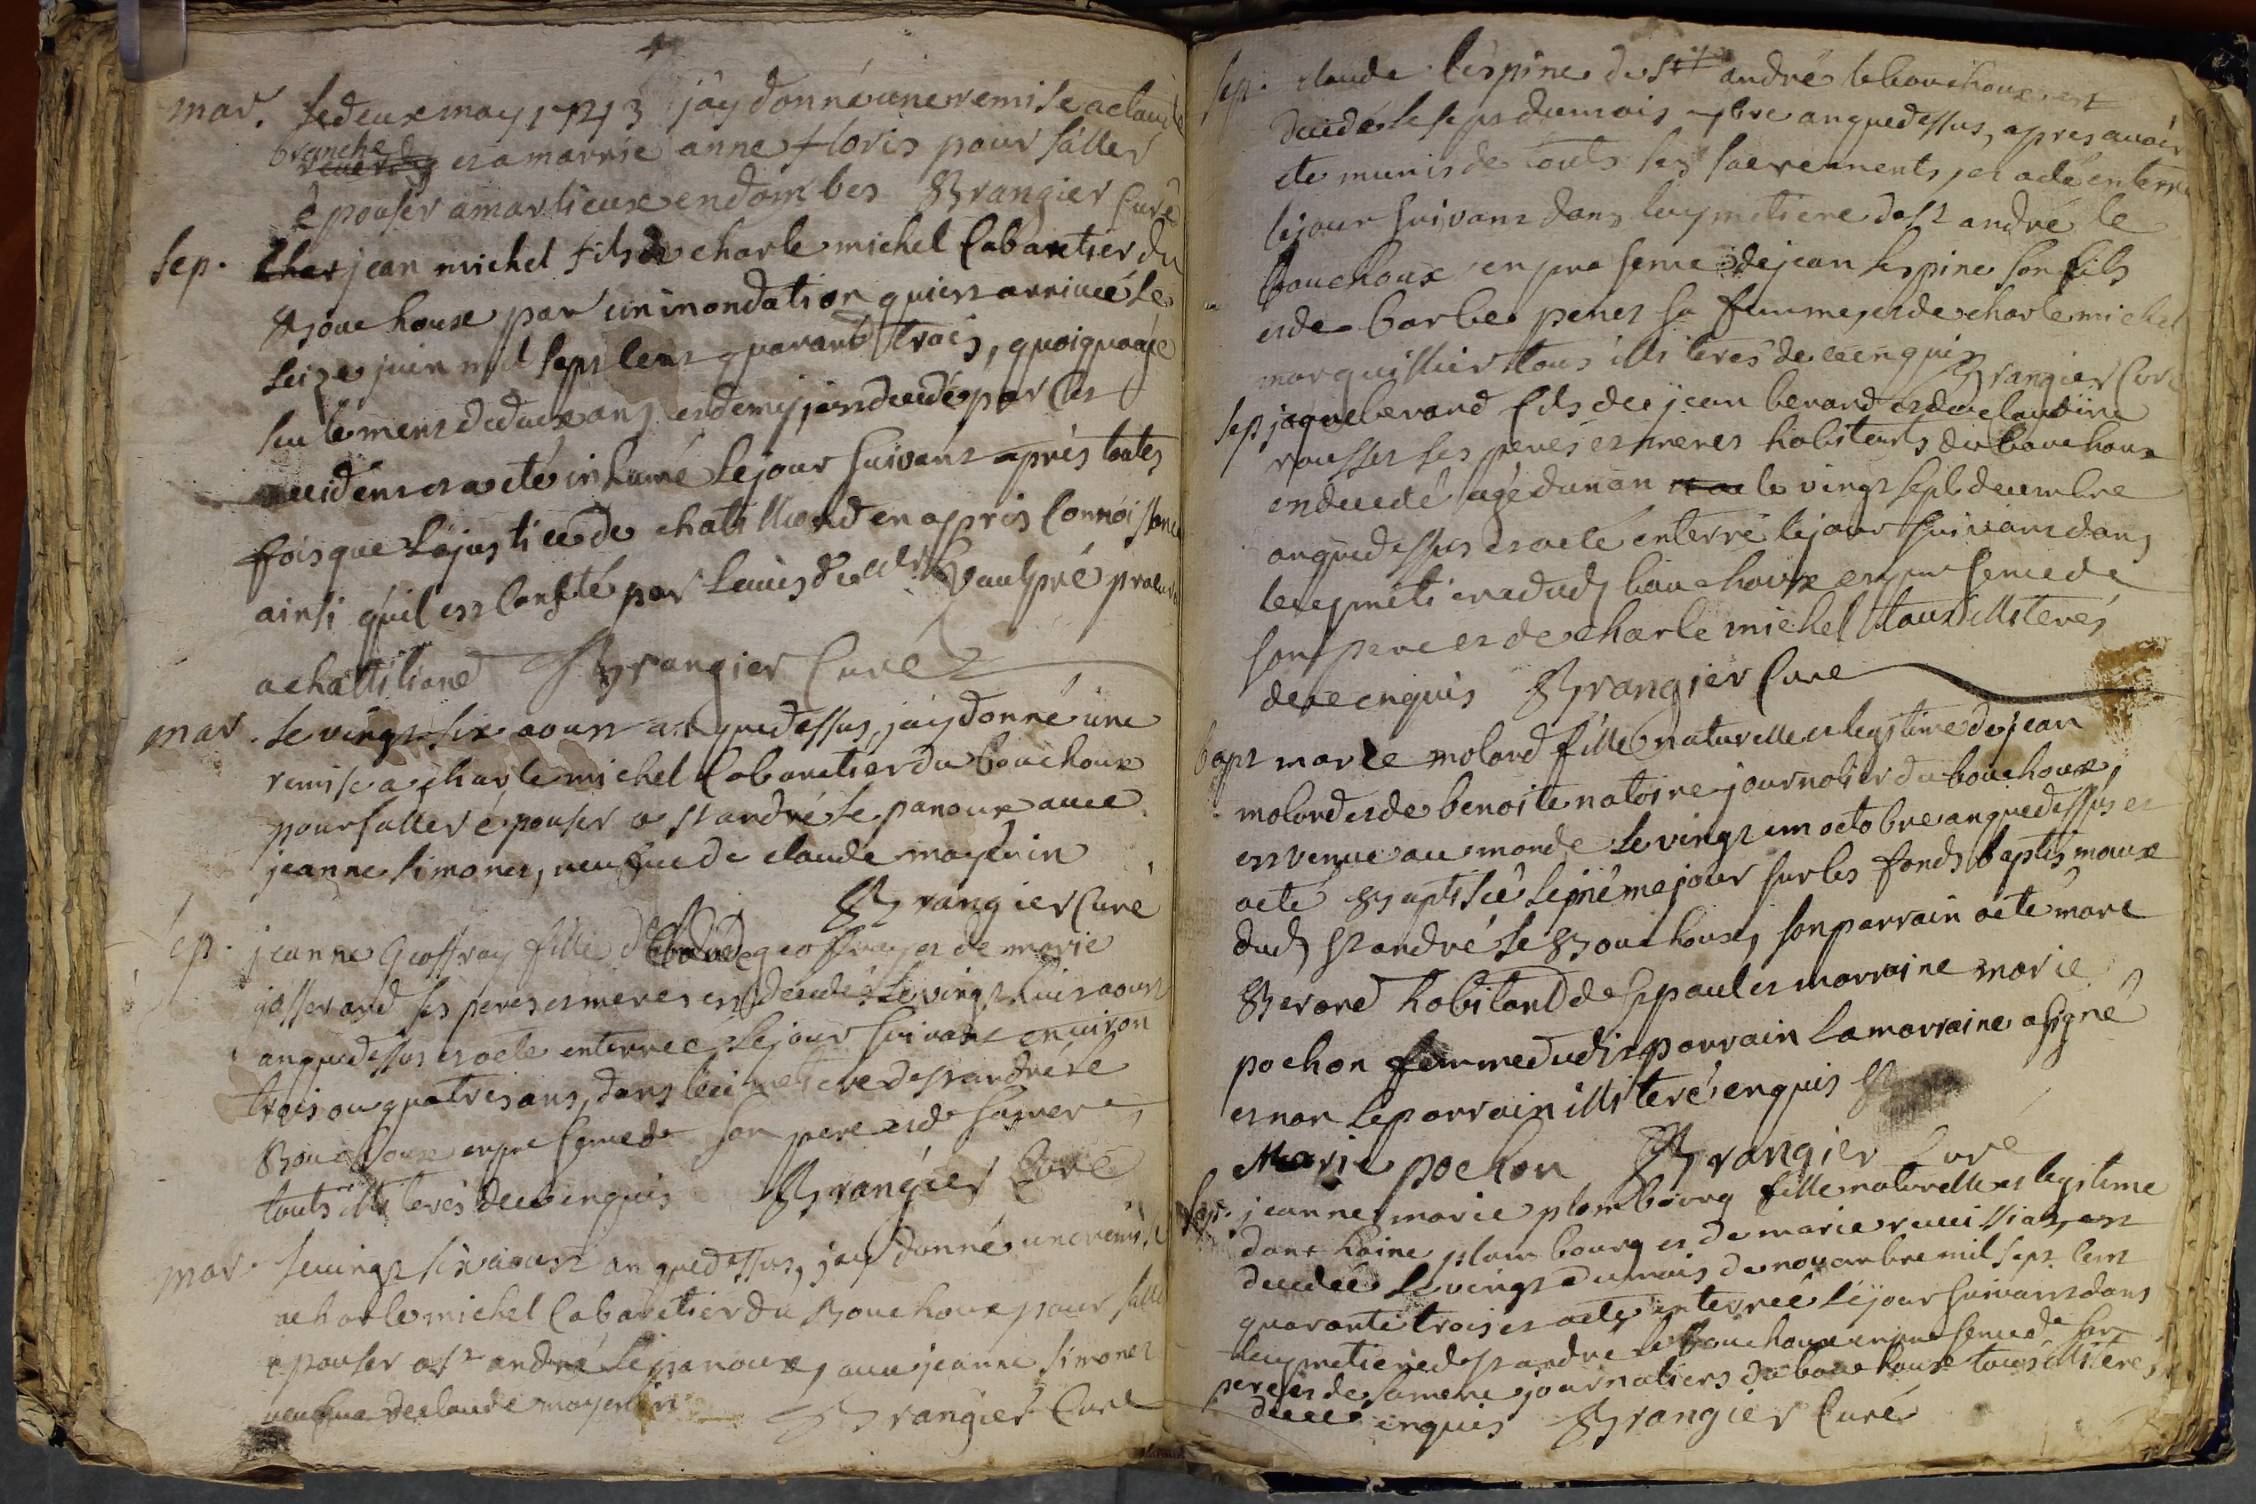 mar. le deux may 1743 j'ay donné une remise a claude
branche et a marrie anne floris pour s'aller
épouser a marlieux en dombes Brangier Curé
sep. jean michel fils de charle michel Cabaretier du
Bouchoux par un inondation qui est arrivée le
seize juin mil sept cent quarante trois, quoiquagé
seulement de deux ans et demy, decedé par les
accidens et a eté inhumé le jour suivant après toutes
fois que la justice de chatillond en a pris Connoissance
ainsi qu'il est consté par Vaulpré procureur
a chattiliond Brangier Curé
mar. le vingt six aoust an que dessus, j'ay donné une
remise a charle michel Cabaretier du bouchoux
pour s'aller épouser a st andré le panoux avec
jeanne simonet, veufve de claude moyenin
Brangier Curé
sep. jeanne Geoffray fille de geoffray et de marie
josserand ses peres et meres est decedée le vingt huit aoust
an que dessus et a eté enterreé le jour suivant environ
trois ou quatres ans, dans le cimetiere de st andré le
Bouchoux en presence de son pere et de sa mere,
touts illiterés de ce enquis Brangier Curé
mar. le vingt six aoust an que dessus, j'ay donné une remise
a charle michel Cabaretier du Bouchoux pour s'aller
epouser a st andré le panoux, avec jeanne simonet
veufve de claude moyenin Brangier Curé
sep. claude l'espine de st andré le bouchoux est
decedé le sept du mois an que dessus, apres avoir
eté munis de touts les sacrements, et a eté enterré
le jour suivant dans le cymetiere de st andré le
bouchoux en presence de jean lespine son fils
et de barbe penet sa femme, et de charle michel
marguillier touts illiterés de ce enquis Brangier Curé
sep jaque berard fils de jean berard et de claudine
rousset ses peres et meres habitents du bouchoux
en decedé agé d'un an le vingt sept decembre
an que dessus et a eté enterré le jour suivant dans
le cymetiere dud bouchoux en presence de
son pere et de charle michel touts illiterés
de ce enquis Brangier Curé
bapt marie molard fille naturelle et legitime de jean
molard et de benoite natoire journalier du bouchoux,
est venue au monde le vingt un octobre an que dessus et
a eté Baptisée le même jour sur les fonds baptismaux
dud st andré le Bouchoux, son parrain a eté marc
Berard habitant de st paul et marraine marie
pochon femme dudit parrain la marraine a signé
et non le parrain illiteré enquis
Marie pochon Brangier Curé
sep. jeanne marie plombourg fille naturelle et legitime
d'anthoine plombourg et de marie est
decedée le vingt du mois de novembre mil sept cent
quarante trois et a eté enterreé le jour suivant dans
le cymetiere de st andré le Bouchoux en presence de son
pere et de sa mere journaliers du bouchoux touts illiterés
de ce enquis Brangier Curé